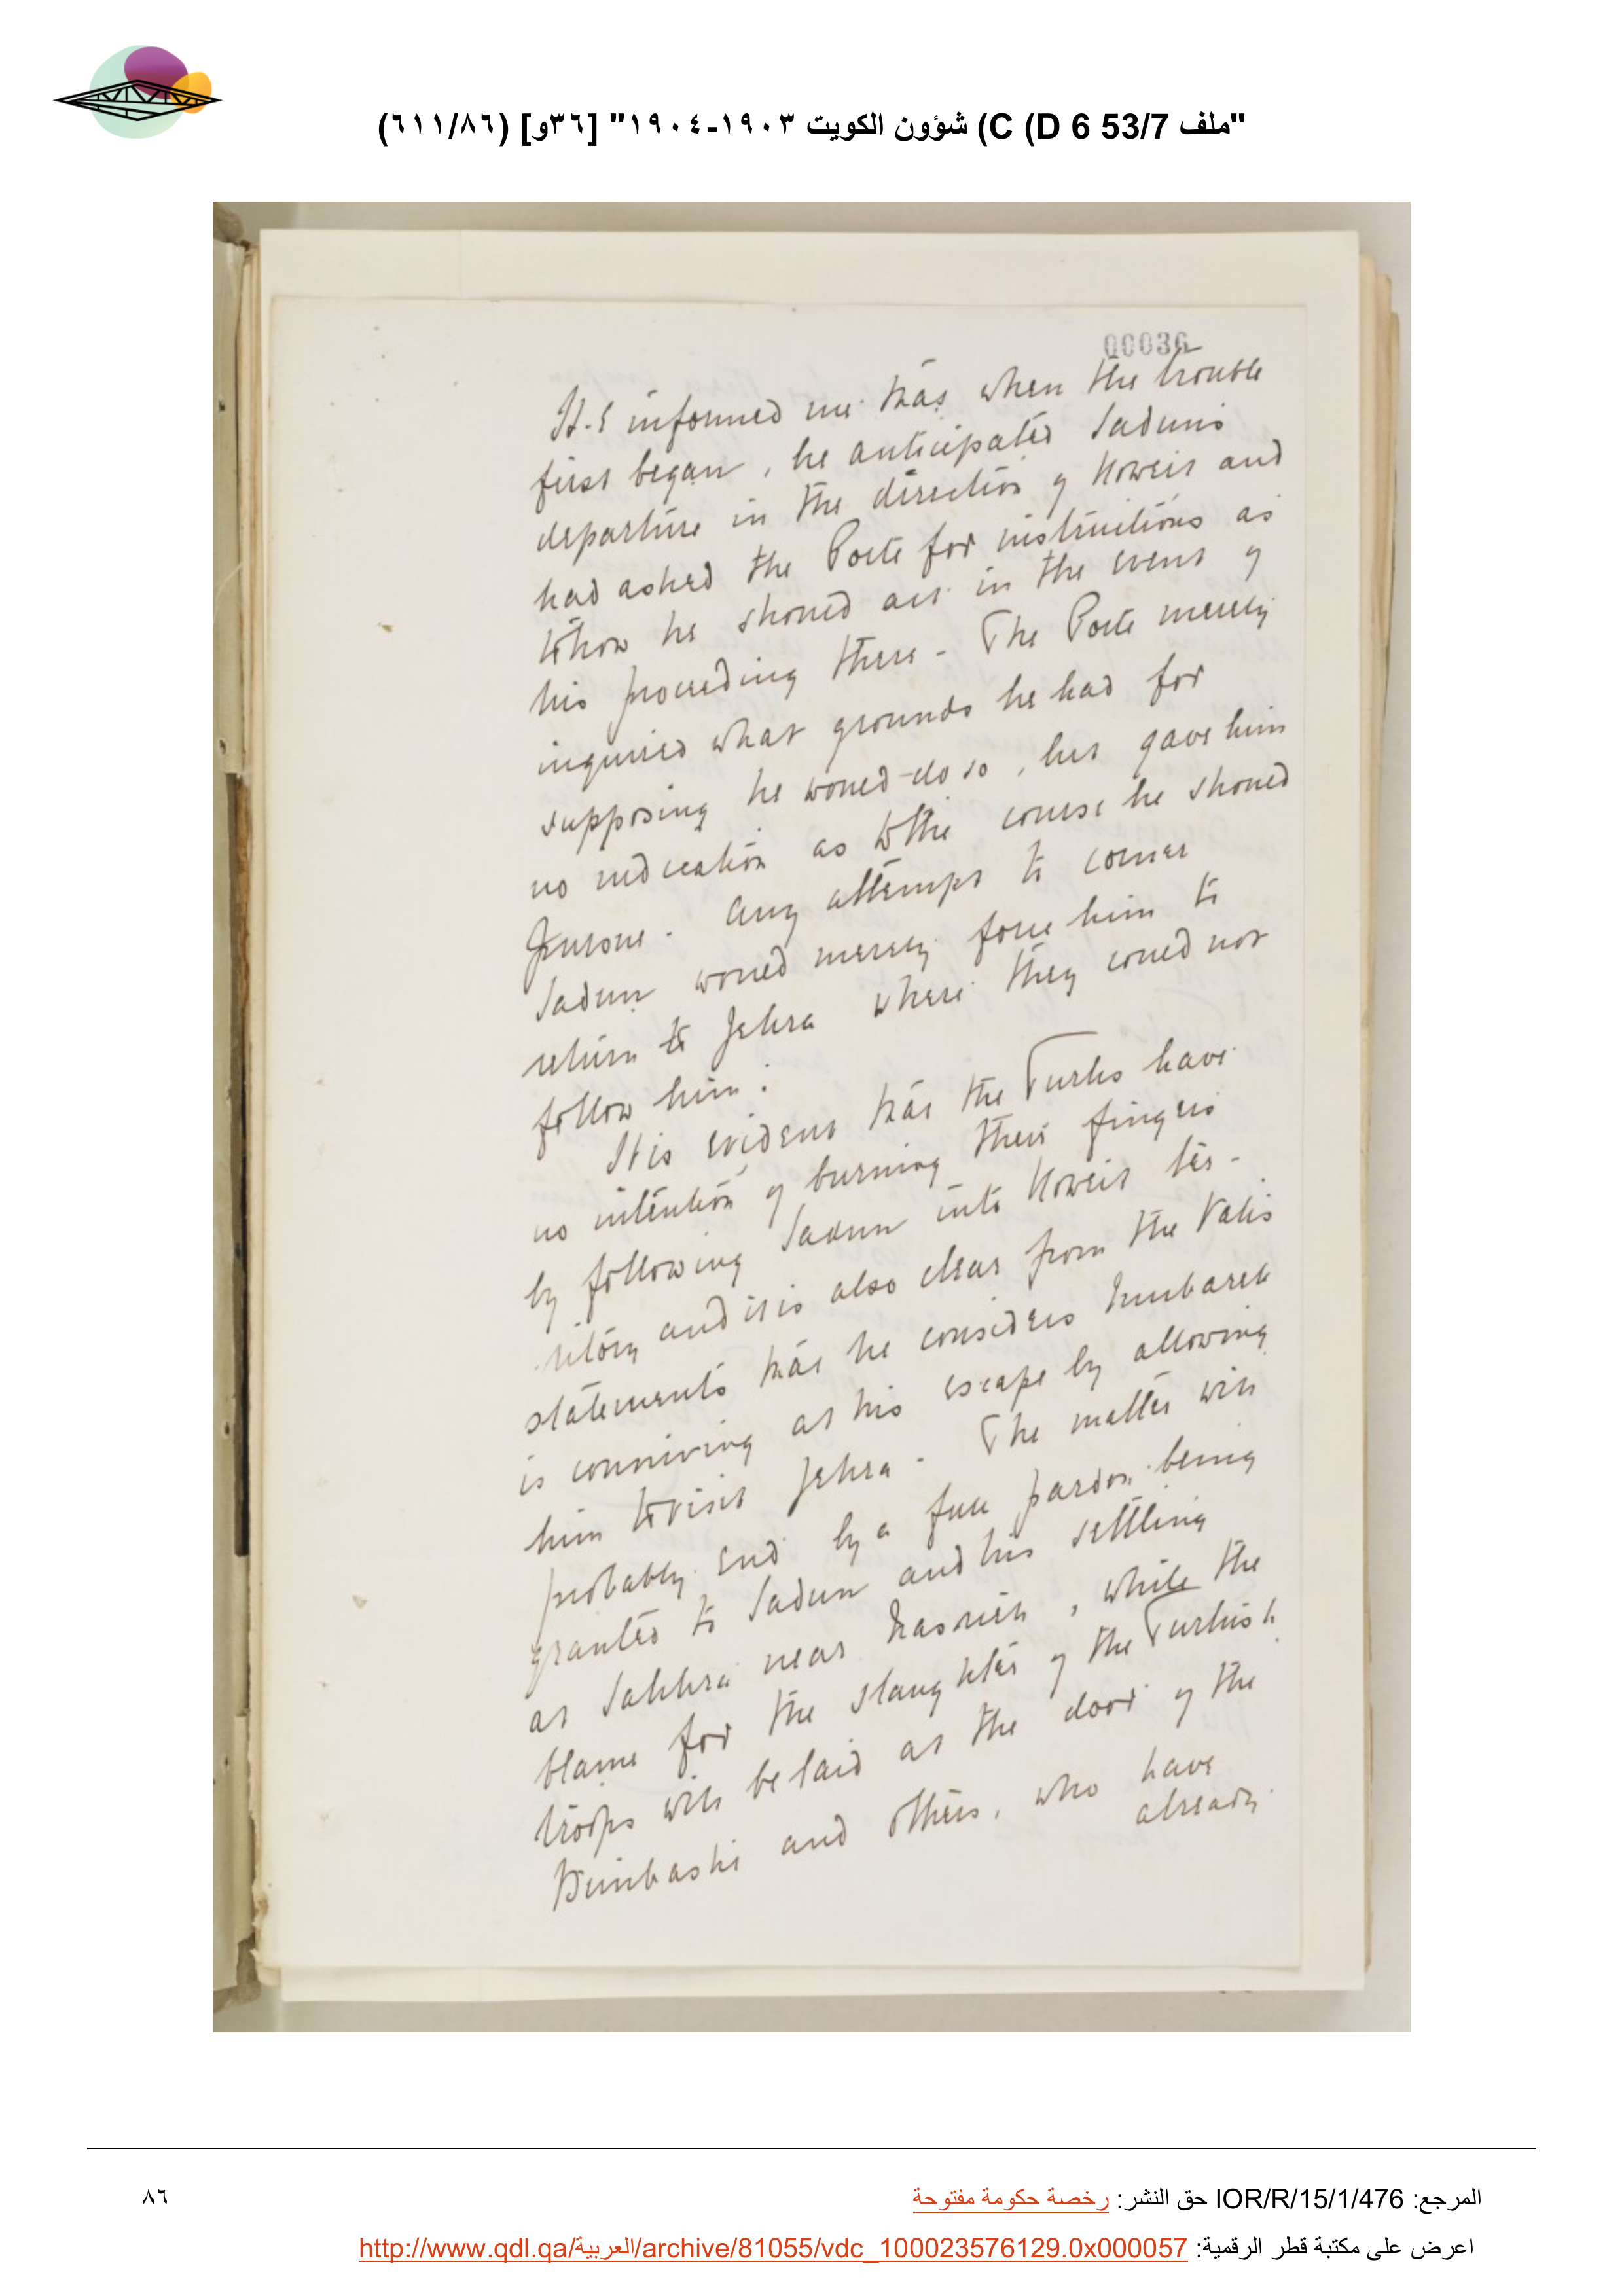 "ملف 53/7 C (D 6) شؤون الكويت ١٩٠٣-١٩٠٤" [٣٦و] (٦١١/٨٦)
00036
H.E informed me that when the trouble
first began, he anticipated Sadun's
departure in the direction of Koweit and
had asked the Porte for instructions as
to how he should act in the event of
his proceeding there. The Porte merely
inquired what grounds he had for
supposing he would do so, but gave him
no indication as to the course he should
pursue. Any attempt to corner
Sadun would merely force him to
return to Jehra where they could not
follow him.
It is evident that the Turks have
no intention of burning their fingers
by following Sadun into Koweit ter-
ritory and it is also clear from the Valis
statements that he considers Mubarek
is conniving at his escape by allowing
him to visit Jehra. The matter will
probably end by a full pardon being
granted to Sadun and his settling
at Sakhra near Nasrieh, while the
blame for the slaughter of the Turkish
troops will be laid at the door of the
Bimbashi and others, who have
already
المرجع: IOR/R/15/1/476 حق النشر: رخصة حكومة مفتوحة
٨٦
اعرض على مكتبة قطر الرقمية: http://www.qdl.qa/العربية/archive/81055/vdc_100023576129.0x000057